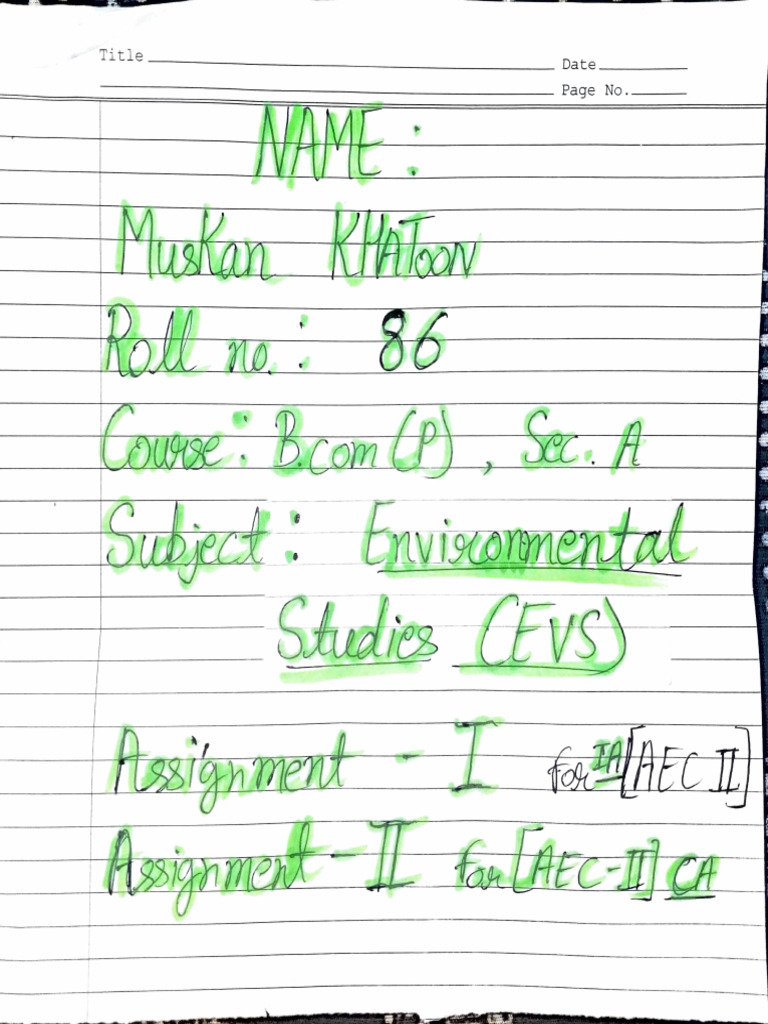 Title
Date
Page No.
NAME :
MusKan KHAToon
Roll no. : 86
Course : B.com (P) , Sec. A
Subject : Environmental
Studies (EVS)
Assignment - I for IA [AEC II]
Assignment - II for [AEC-II] CA